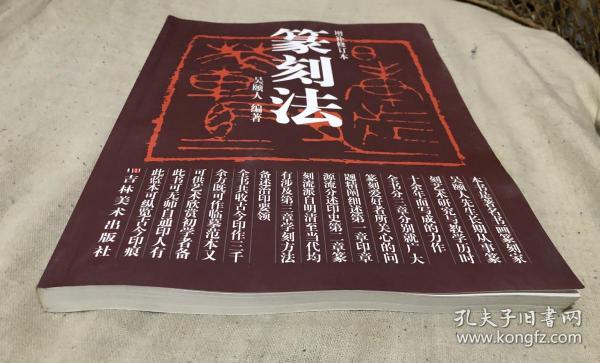 增补修订本
篆刻法
吴颐人 编著
本书是著名书画篆刻家
吴颐人先生长期从事篆
刻艺术研究与教学历时
十余年而写成的力作
全书分三章分别就广大
篆刻爱好者所关心的问
题精阐细述第一章印章
源流分述印史第二章篆
刻流派自明清至当代均
有涉及第三章学刻方法
备述治印要领
全书共收古今印作三千
余方既可作临摹范本又
可供艺术欣赏初学者备
此书可无师自通印人有
此本可纵览古今印痕
吉林美术出版社
孔夫子旧书网
www.kongfz.com